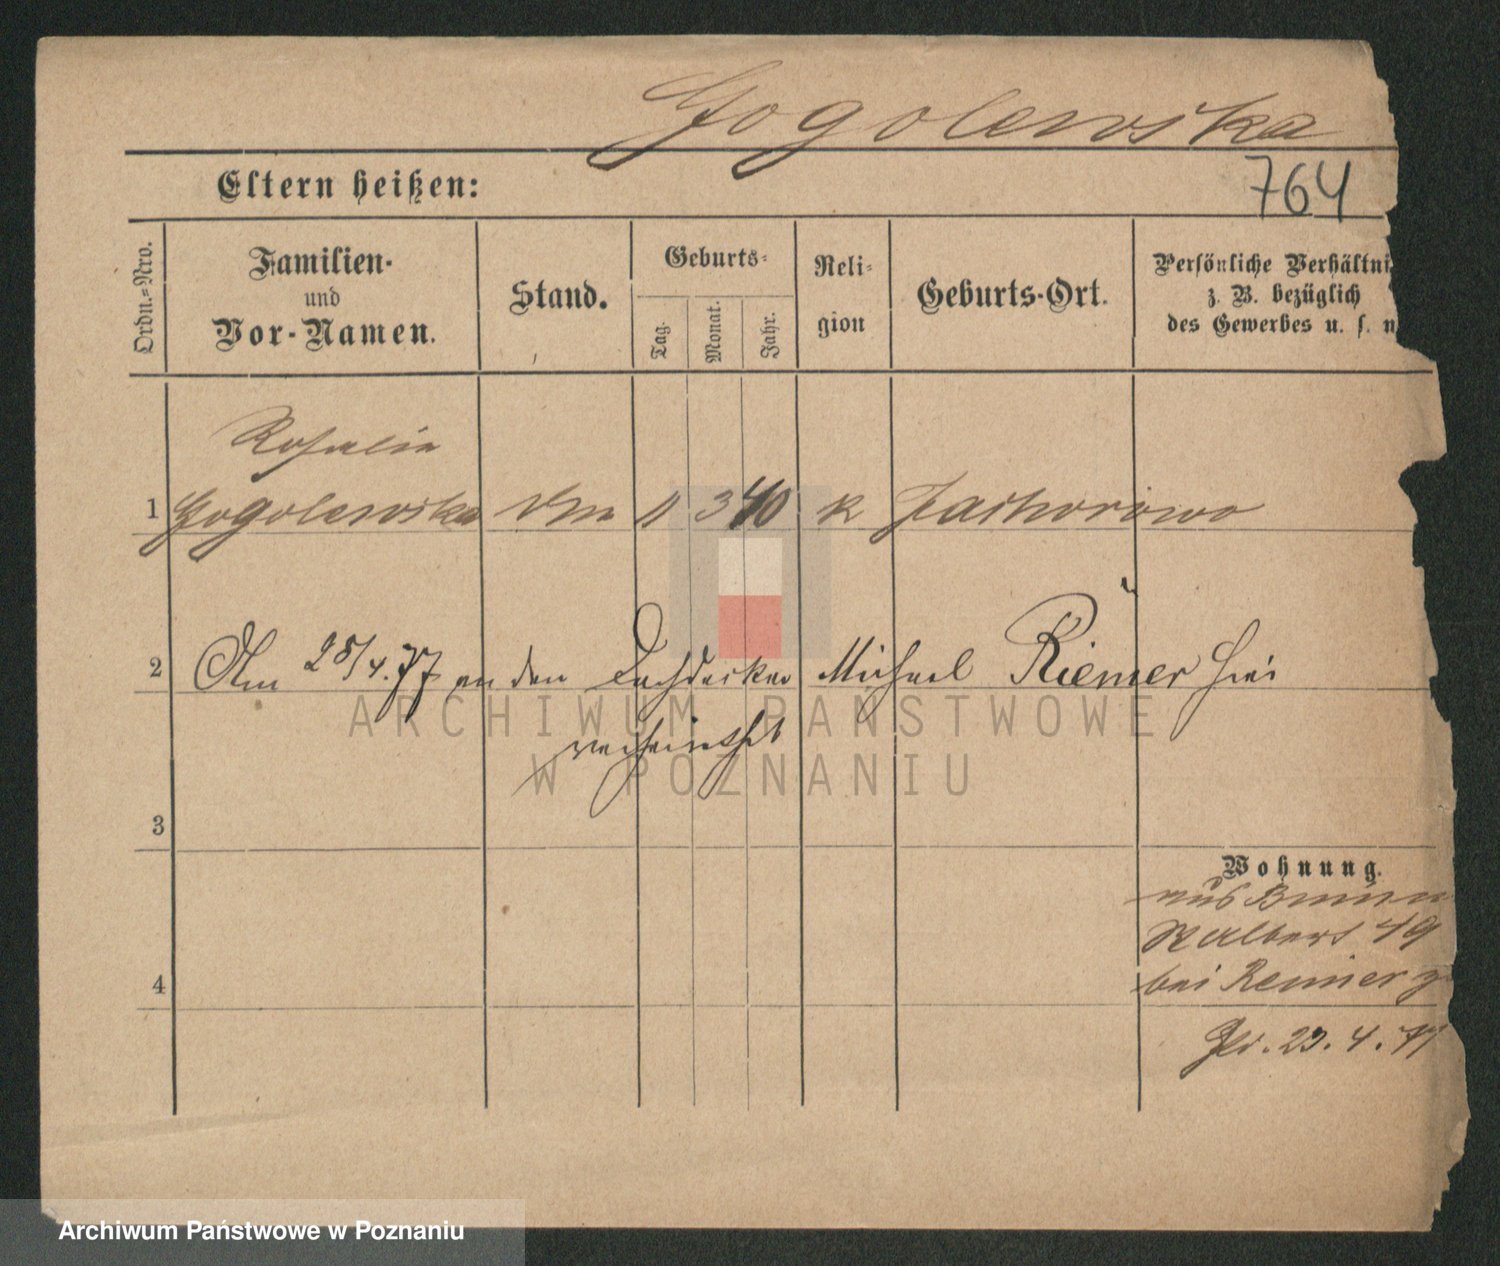 Gogolewska
764
Eltern heißen:
Ordn.-Nro.
Familien-
und
Vor-Namen.
Stand.
Geburts-
Tag.
Monat.
Jahr.
Reli-
gion
Geburts-Ort.
Persönliche Verhältni
z. B. bezüglich
des Gewerbes u. s. w
Rosalie
1 Gogolewska 3 40 k
2 Am 28/4. 77 an den Dachdecker Michael Riemer hier
verheirathet
3
Wohnung.
aus
St Albert 49
4 bei Remer
23. 4. 77
ARCHIWUM PAŃSTWOWE
W POZNANIU
Archiwum Państwowe w Poznaniu